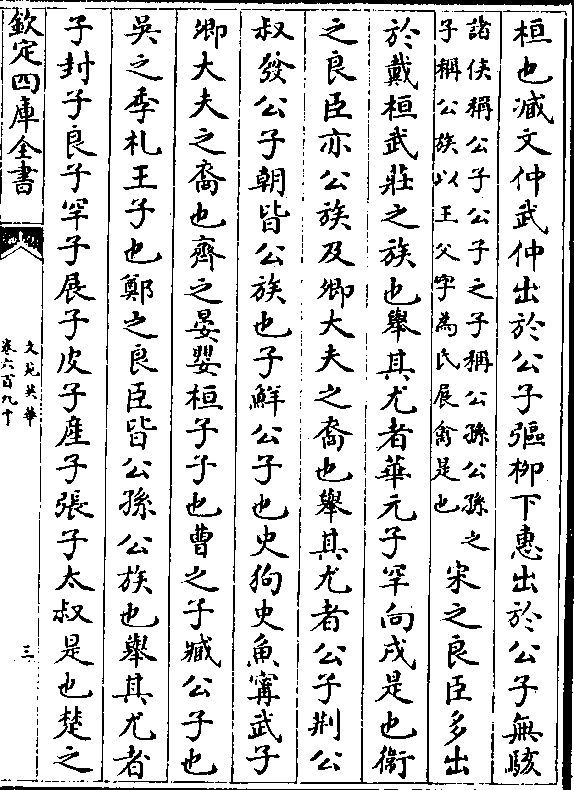 桓也臧文仲武仲出於公子彄柳下惠出於公子無駭
諸侯稱公子公子之子稱公孫公孫之
子稱公族以王父字為氏展禽是也
宋之良臣多出
於戴桓武莊之族也舉其尤者華元子罕向戌是也衛
之良臣亦公族及卿大夫之裔也舉其尤者公子荆公
叔發公子朝皆公族也子鮮公子也史狗史魚甯武子
卿大夫之裔也齊之晏嬰桓子子也曹之子臧公子也
吳之季札王子也鄭之良臣皆公孫公族也舉其尤者
子封子良子罕子展子皮子産子張子太叔是也楚之
欽定四庫全書
文苑英華
卷六百九十
三